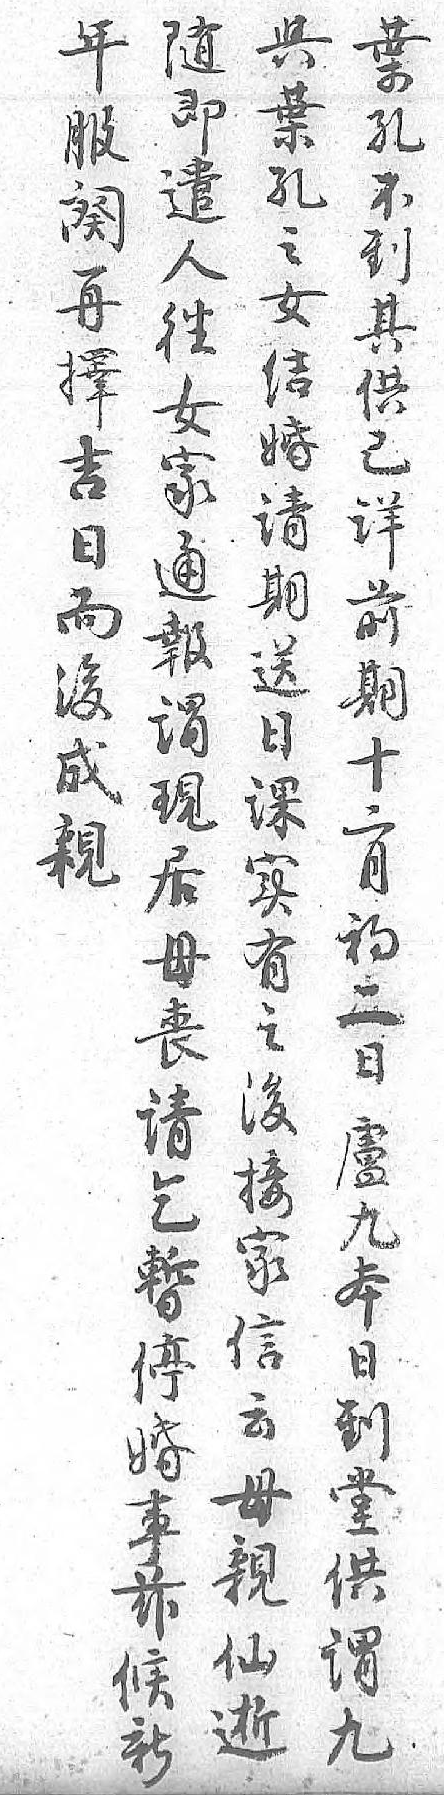 葉孔不到其供已詳前期十二月初二日盧九本日到堂供謂九
與葉孔之女结婚请期送日課实有之後接家信云母親仙逝
随即遣人徃女家通報謂現居母丧请乞暫停婚事兹候新
年服闋再擇吉日而後成親